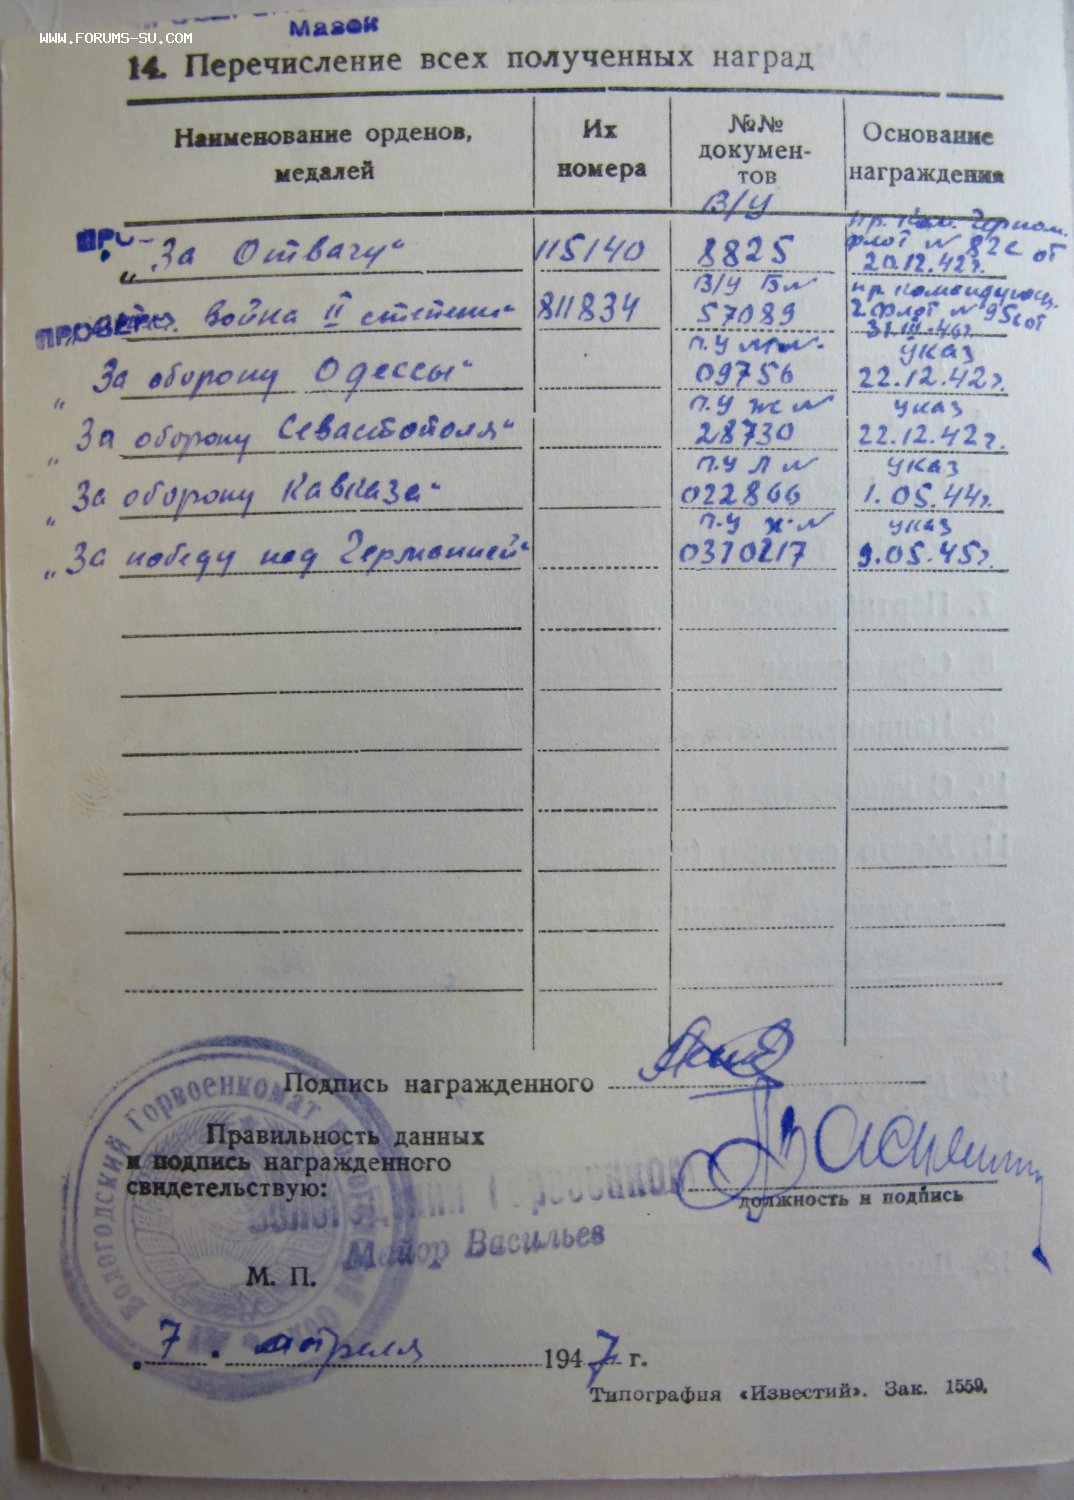 www.forums-su.com
Мазок
14. Перечисление всех полученных наград
Наименование орденов, медалей
Их номера
№№ документов
Основание награждения
„За Отвагу“ 115140 В/У 8825 пр. Ком. Черном. флот № 82с от 20.12.42г.
ПРОВЕРЕ
Война II степени“ 811834 В/У Б№ 57089 пр. командующ. флот № 95с от 31.III.46г.
„За оборону Одессы“ П.У № 09756 указ 22.12.42г.
„За оборону Севастополя“ П.У Ж № 28730 указ 22.12.42г.
„За оборону Кавказа“ П.У Л № 022866 указ 1.05.44г.
„За победу над Германией“ П.У № 0370217 указ 9.05.45г.
Подпись награжденного
Правильность данных
и подпись награжденного
свидетельствую:
должность и подпись
Вологодский Горвоенкомат
Майор Васильев
М. П.
7 апреля 1947 г.
Типография «Известий». Зак. 1559.